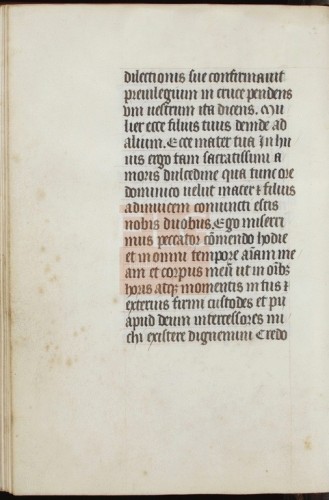 dilectionis sue confirmauit
preuilegium in cruce pendens
vni vestrum ita dicens. Mu
lier ecce filius tuus deinde ad
alium. Ecce mater tua In hu
ius ergo tam sacratissimi a
moris dulcedine qua tunc ore
dominico velut mater ⁊ filius
adinuicem coniuncti estis
nobis duobus. Ego miserri
mus peccator cōmendo hodie
et in omni tempore aīam me
am et corpus meū ut in oībꝫ
horis atqꝫ momentis intus ⁊
exterius firmi custodes et pii
apud deum intercessores mi
chi existere dignemini Credo